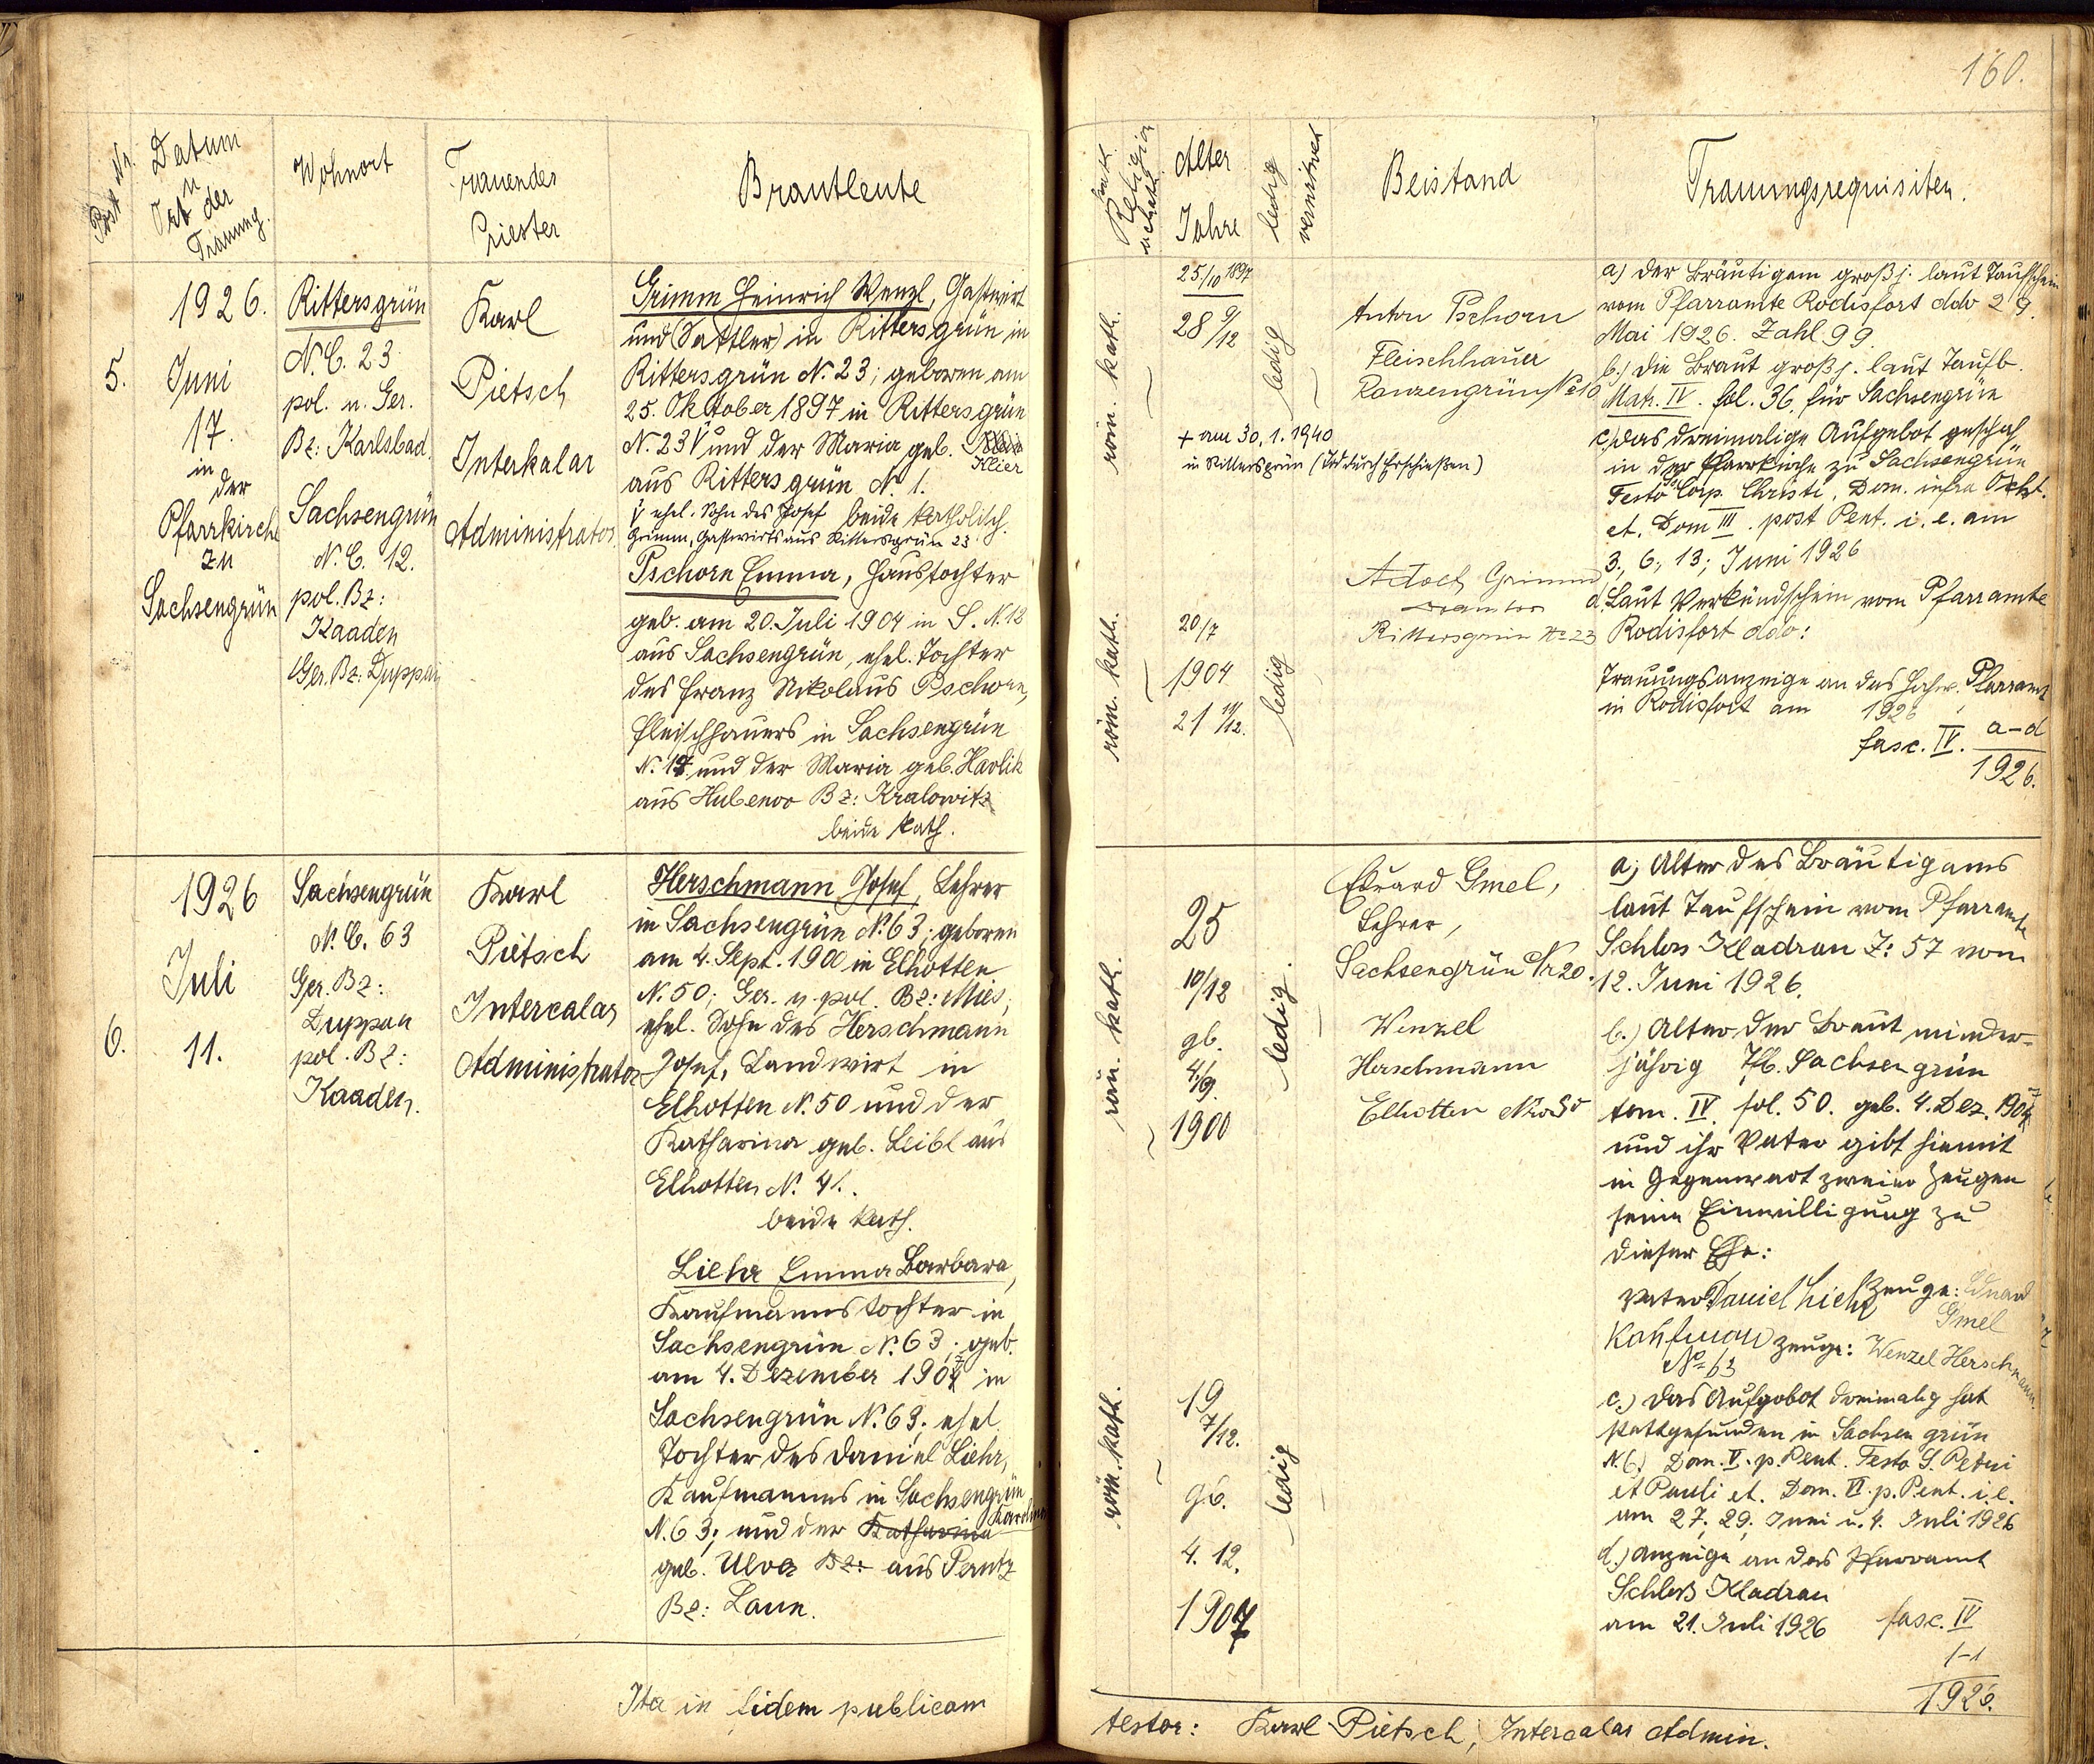 160.
Post Nr.
Datum
u
Ort der
Trauung.
Wohnort
Trauender
Priester
Brautleute
Religion
kath.
akath.
Alter
Jahre
ledig
verwitwet
Beistand
Trauungsrequisiten.
5.
1926.
Juni
17.
in
der
Pfarrkirche
zu
Sachsengrün
Rittersgrün
N. C. 23
pol. u. Ger.
Bz: Karlsbad.
Sachsengrün
N. C. 12.
pol. Bz:
Kaaden
Ger. Bz: Duppau
Karl
Pietsch
Interkalar
Administrator.
Grimm Heinrich Wenzl, Gastwirt
und (Sattler) in Rittersgrün in
Rittersgrün N. 23; geboren am
25. Oktober 1897 in Rittersgrün
N. 23 V und der Maria geb.
Klier
aus Rittersgrün N. 1.
V ehel. Sohn des Josef beide katholisch.
Grimm, Gastwirts aus Rittersgrün 23
Pschorn Emma, Haustochter
geb. am 20. Juli 1904 in S. N. 12
aus Sachsengrün, ehel. Tochter
des Franz Nikolaus Pschorn,
Fleischhauers in Sachsengrün
N. 12 und der Maria geb. Havlik
aus Hubenov Bz: Kralowitz
beide kath.
röm. kath.
25./10 1897
28 9/12
ledig
+ am 30. 1. 1940
in Rittersgrün (Tod durch Erschießen)
röm. kath.
20/7
1904
21 11/12.
ledig
Anton Pschorn
Fleischhauer
Ranzengrün No 10
Adolf Grimm
Rittersgrün No 23
a) der Bräutigam großj. laut Taufschein
vom Pfarramte Rodisfort ddo 29.
Mai 1926. Zahl 99.
b.) die Braut großj. laut Taufb.
Matr. IV. fol. 36. für Sachsengrün
c) das dreimalige Aufgebot geschah
in der Pfarrkirche zu Sachsengrün
Festo Corp. Christi, Dom. infra Okt.
et. Dom III. post Pent. i. e. am
3., 6., 13; Juni 1926
d. Laut Verkündschein vom Pfarramte
Rodisfort ddo:
Trauungsanzeige an das hochw. Pfarramt
in Rodisfort am 1926
fasc. IV. a-d
1926.
6.
1926
Juli
11.
Sachsengrün
N. C. 63
Ger. Bz:
Duppau
pol. Bz:
Kaaden.
Karl
Pietsch
Intercalar
Administrator
Herschmann Josef, Lehrer
in Sachsengrün N. 63; geboren
am 4. Sept. 1900 in Elhotten
N. 50; Ger. u. pol. Bz: Mies,
ehel. Sohn des Herschmann
Josef, Landwirt in
Elhotten N. 50 und der
Katharina geb. Leibl aus
Elhotten N. 41.
beide kath.
Liehr Emma Barbara,
Kaufmannstochter in
Sachsengrün N. 63; geb.
am 4. Dezember 1907 in
Sachsengrün N. 63, ehel.
Tochter des Daniel Liehr,
Kaufmanns in Sachsengrün
Karolina
N. 63; und der Katharina
geb. Ulva Bz: aus Perutz
Bz: Laun.
röm. kath.
25
10/12
gb.
4/9.
1900
ledig.
röm. kath.
19
7/12.
gb.
4. 12.
1907
ledig
Eduard Gmel,
Lehrer,
Sachsengrün Nr 20.
Wenzel
Herschmann
Elhotten Nro 50
a, Alter des Bräutigams
laut Taufschein vom Pfarramte
Schloss Kladrau Z: 57 vom
12. Juni 1926.
b.) Alter der Braut minder-
jährig Tfb. Sachsengrün
tom. IV. fol. 50. geb. 4. Dez. 1907
und ihr Vater gibt hiemit
in Gegenwart zweier Zeugen
seine Einwilligung zu
dieser Ehe:
Vater Daniel Liehr Zeuge: Eduard
Gmel
Kaufmann Zeuge: Wenzel Herschmann.
No 63
c.) Das Aufgebot dreimalig hat
stattgefunden in Sachsengrün
Dom. V. p. Pent. Festo S. Petri
et Pauli et. Dom. VI. p. Pent. i. e.
am 27., 29. Juni u. 4. Juli 1926
d.) Anzeige an das Pfarramt
Schloß Kladrau
am 21. Juli 1926 fasc. IV
1-1
1926.
Ita in fidem publicam
testor: Karl Pietsch, Intercalar Admin.